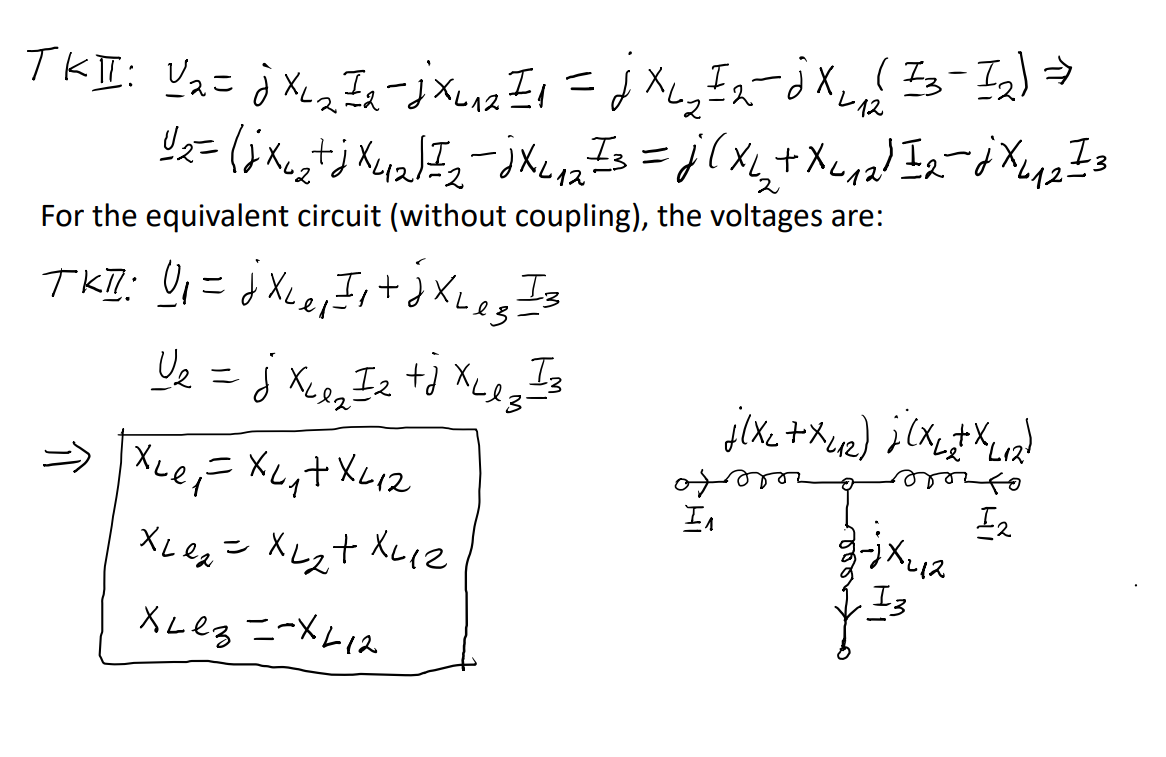 TKII: U₂ = jX_L₂ I₂ - jX_L12 I₁ = jX_L₂ I₂ - jX_L12 (I₃ - I₂) ⇒
U₂ = (jX_L₂ + jX_L12) I₂ - jX_L12 I₃ = j(X_L₂ + X_L12) I₂ - jX_L12 I₃
For the equivalent circuit (without coupling), the voltages are:
TKII: U₁ = jX_Le₁ I₁ + jX_Le₃ I₃
U₂ = jX_Le₂ I₂ + jX_Le₃ I₃
⇒ X_Le₁ = X_L₁ + X_L12
X_Le₂ = X_L₂ + X_L12
X_Le₃ = -X_L12
j(X_L + X_L12) j(X_L₂ + X_L12)
I₁ I₂
-jX_L12
I₃